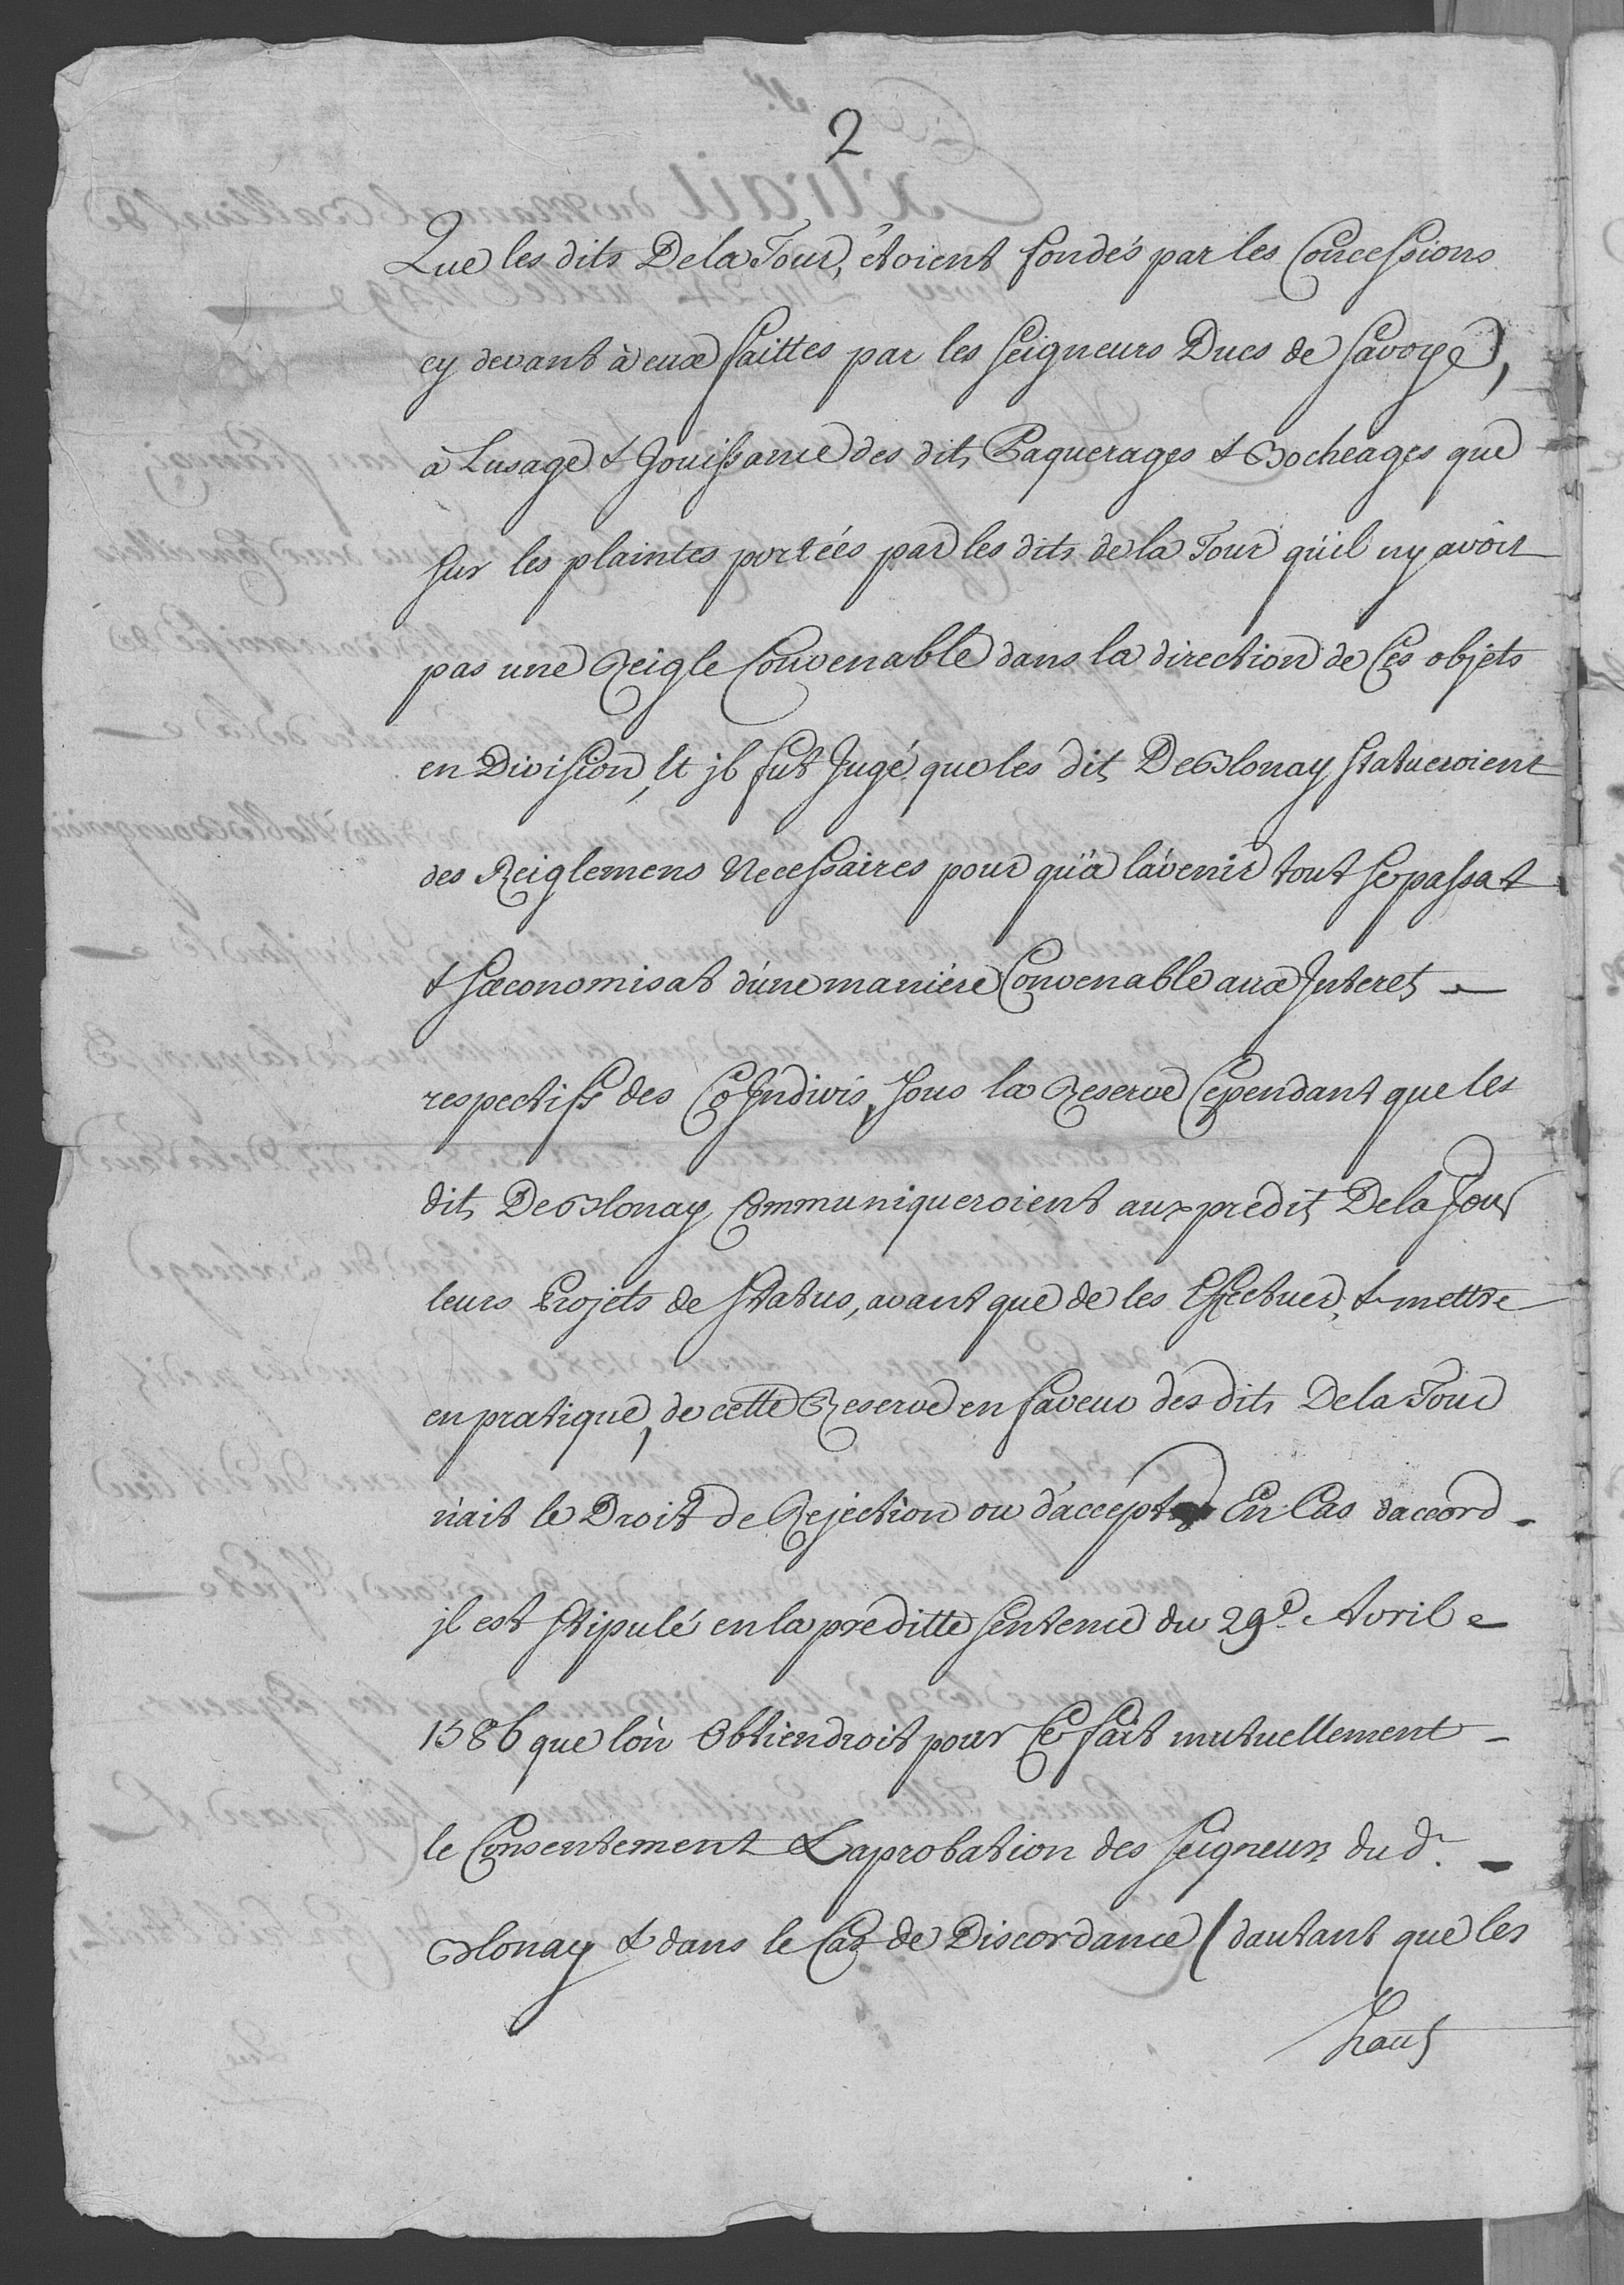 2
Que les dits De la Tour, étoient fondés par les Concessions
cy devant à eux faittes par les seigneurs Ducs de Savoye,
à Lusage & Jouissance des dits Paquerages & Bocheages que
sur les plaintes portées par les dits de la Tour qu'il ny avoit
pas une Reigle Convenable dans la direction de Ces objets
en Division, Et jl fut Jugé que les dits De Blonay statueroient
des Reiglemens Necessaires pour qu'à l'avenir tout se passat
& s'œconomisat d'une maniére Convenable aux Interets
respectifs des CoJndivis, sous la Reserve Cependant que les
dits De Blonay Communiqueroient aux predits De la Tour
leurs Projets de Status, avant que de les Effectuer, & mettre
en pratique, de cette Reserve en faveur des dits De la Tour
nait le Droit de Rejection ou d'accepter En Cas daccord
jl est stipulé en la preditte sentence du 29e Avril
1586 que l'on Obtiendroit pour Ce fait mutuellement
le Consentement & Laprobation des seigneurs du dt
Blonay & dans le Cas de Discordance (dautant que les
hauts